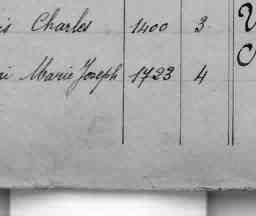 is Charles 1400 3
ai Marie Joseph 1723 4